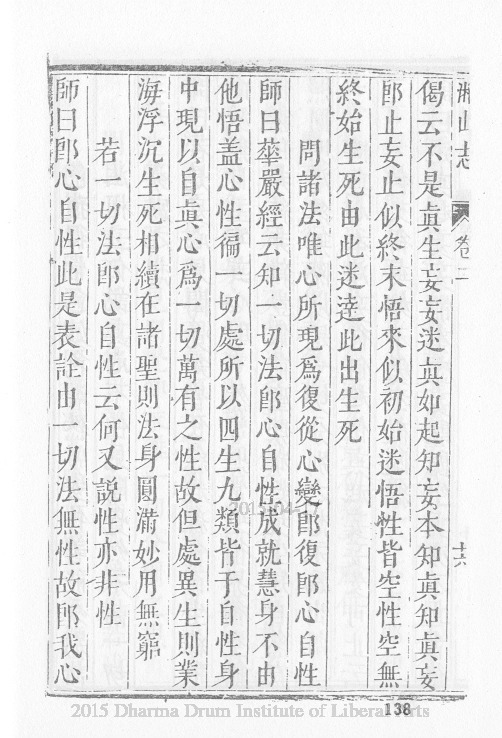 湘山志 卷二 十六
偈云不是眞生妄妄迷眞如起知妄本知眞知眞妄
卽止妄止似終末悟來似初始迷悟性皆空性空無
終始生死由此迷達此出生死
問諸法唯心所現爲復從心變卽復卽心自性
師曰華嚴經云知一切法卽心自性成就慧身不由
他悟葢心性徧一切處所以四生九類皆于自性身
中現以自眞心爲一切萬有之性故但處異生則業
海浮沉生死相續在諸聖則法身圓滿妙用無窮
若一切法卽心自性云何又説性亦非性
師曰卽心自性此是表詮由一切法無性故卽我心
138
2015 Dharma Drum Institute of Liberal Arts